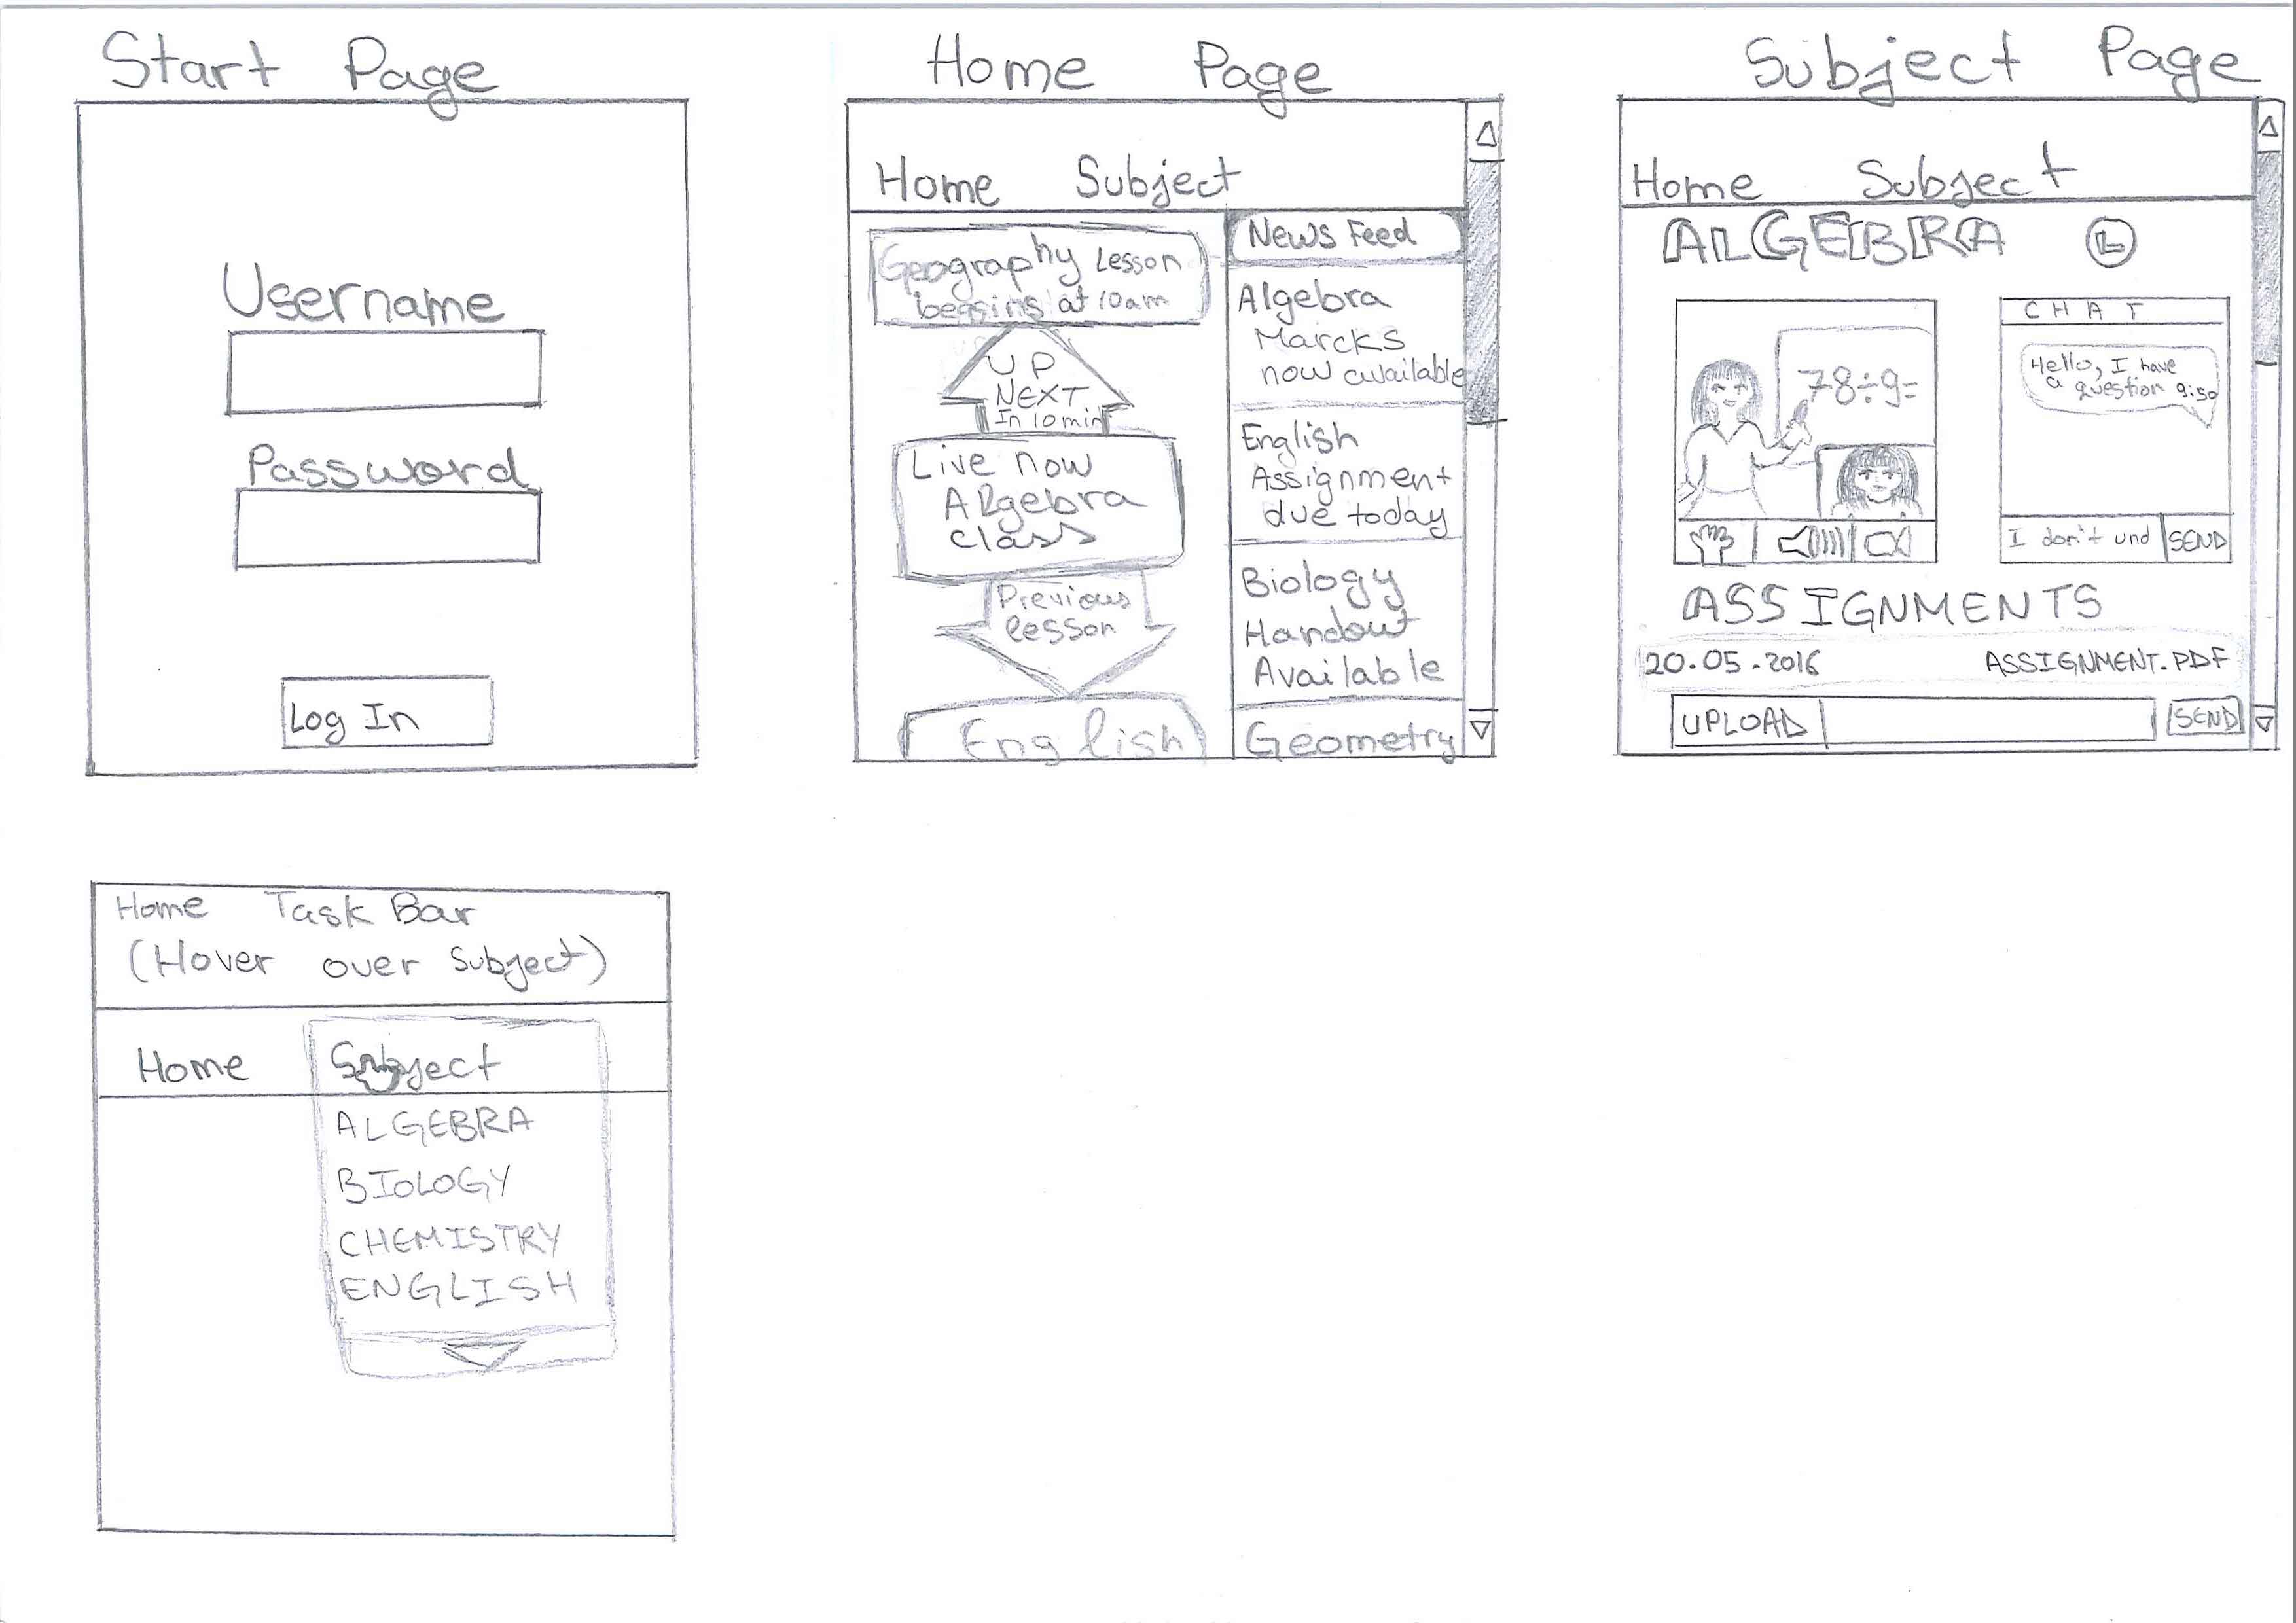 Start Page
Username
Password
Log In
Home Page
Home Subject
Geography Lesson
begsins at 10am
UP
NEXT
In 10 min
Live now
Algebra
class
Previous
lesson
English
News Feed
Algebra
Marcks
now available
English
Assignment
due today
Biology
Handout
Available
Geometry
Subject Page
Home Subject
ALGEBRA
78÷9=
CHAT
Hello, I have
a question 9:50
I don't und SEND
ASSIGNMENTS
20.05.2016 ASSIGNMENT.PDF
UPLOAD SEND
Home Task Bar
(Hover over Subject)
Home Subject
ALGEBRA
BIOLOGY
CHEMISTRY
ENGLISH